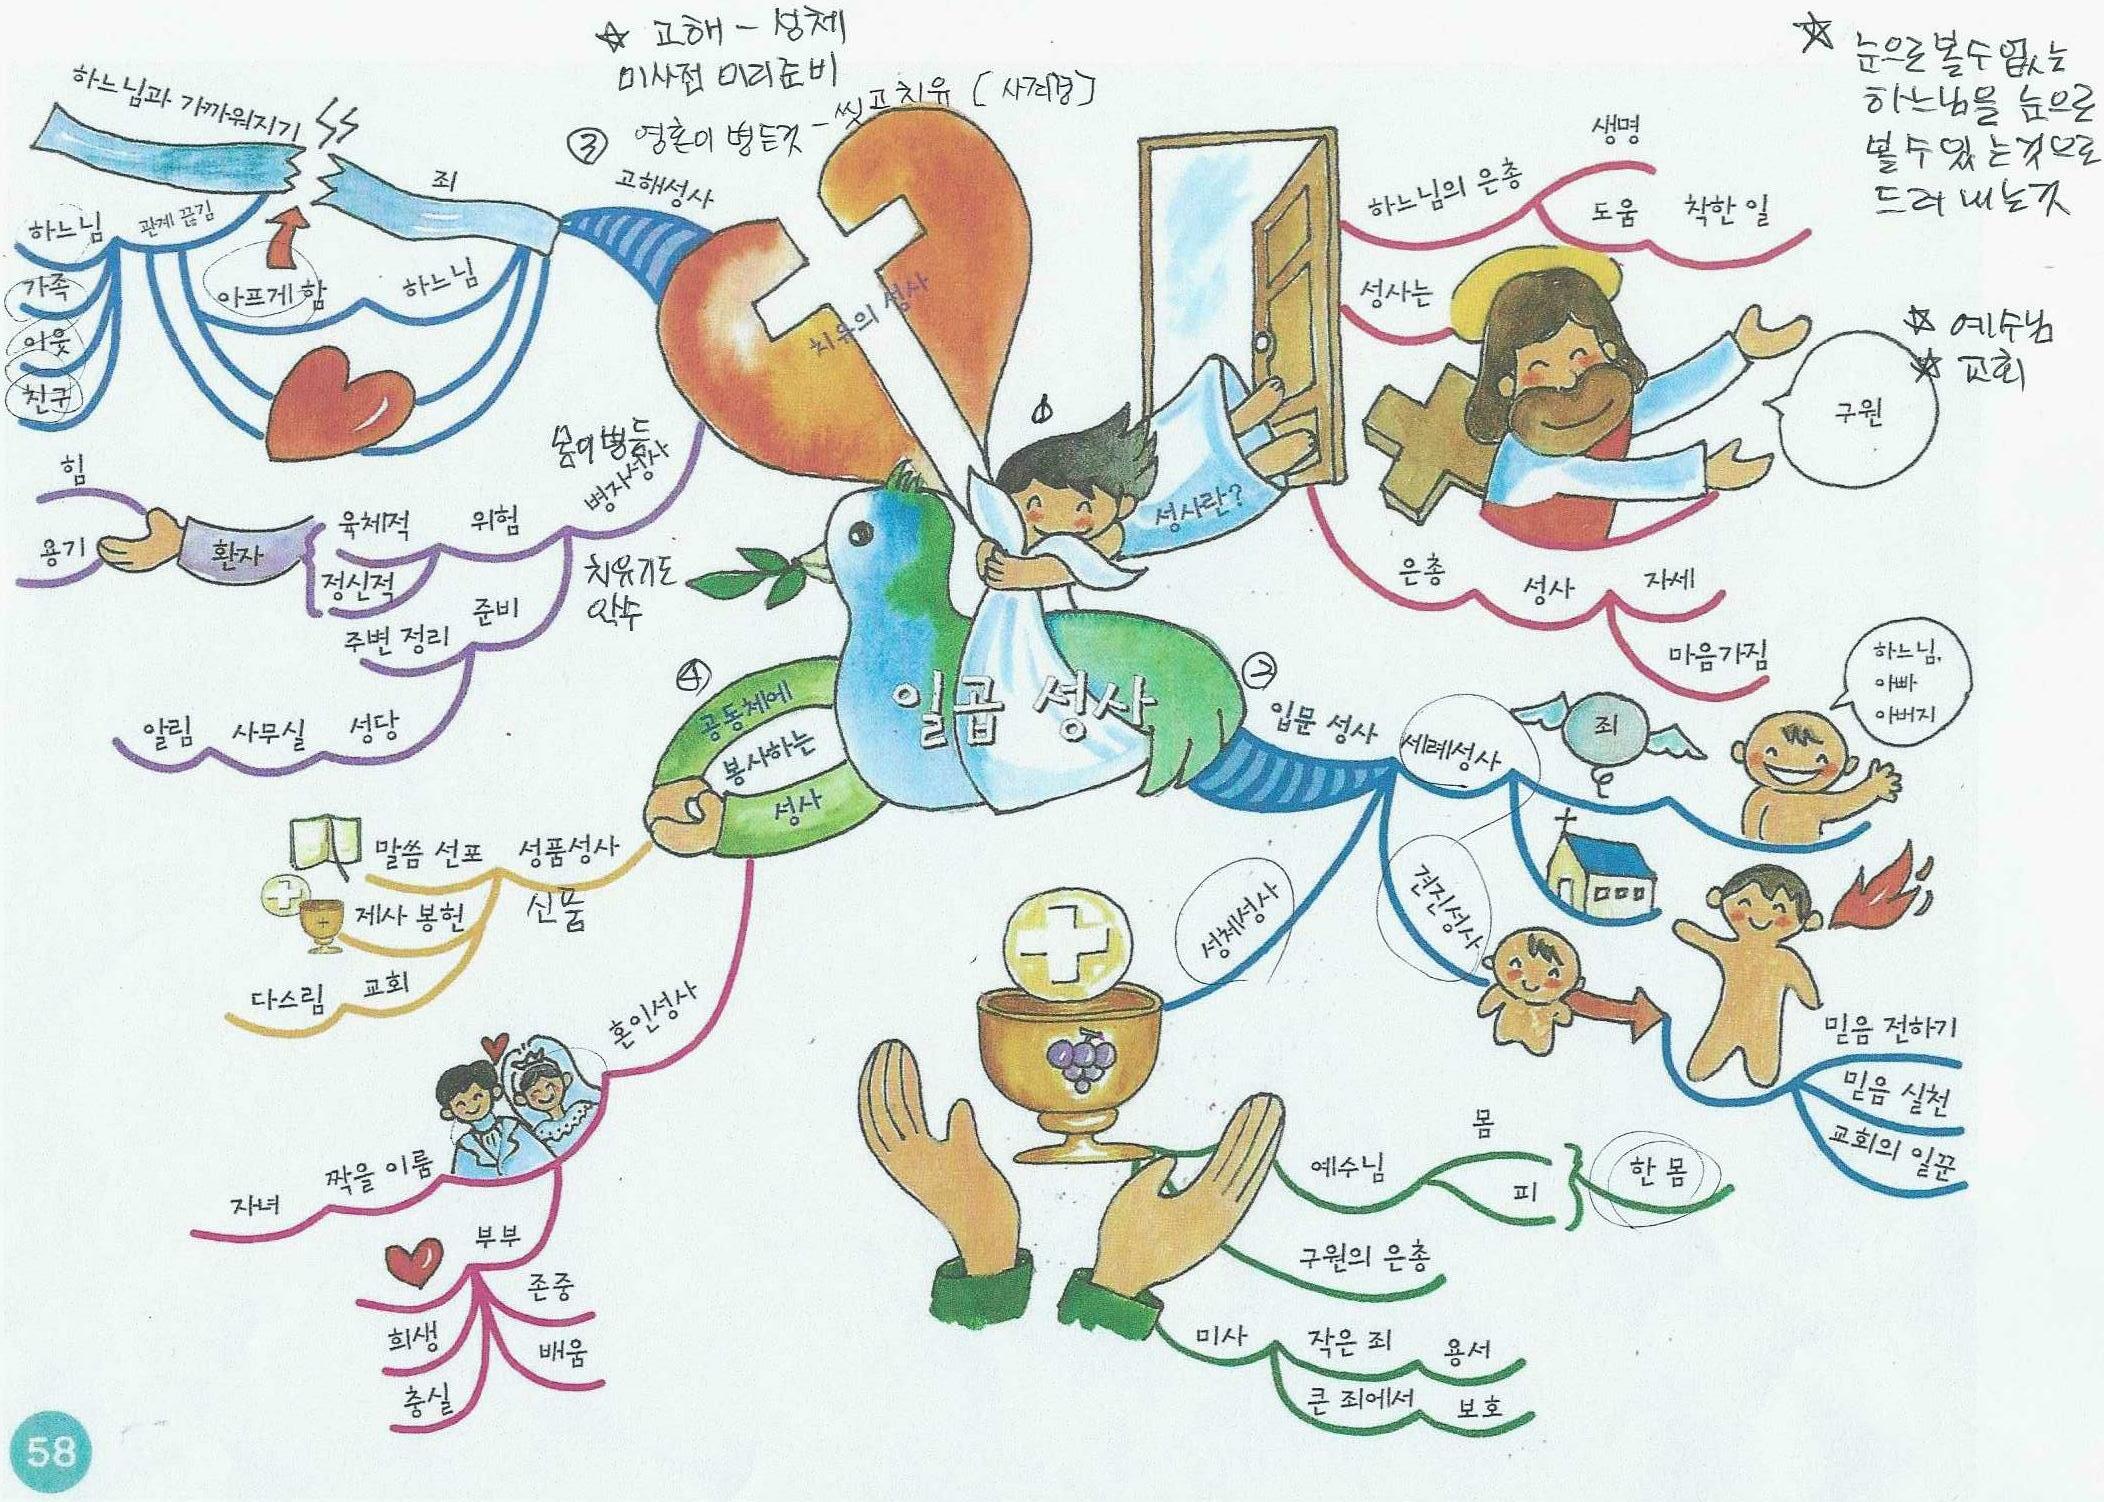 ☆ 고해 - 성체
미사전 미리준비
③ 영혼이 병든것 - 씻고 치유 [사죄경]
☆ 눈으로 볼수 없는
하느님을 눈으로
볼 수 있는 것으로
드러내는것
☆ 예수님
☆ 교회
하느님과 가까워지기
죄
고해성사
하느님
관계 끊김
가족
이웃
친구
아프게 함
하느님
치유의 성사
성사란?
하느님의 은총
생명
도움
착한 일
성사는
구원
은총
성사
자세
마음가짐
몸이 병듦
병자성사
위험
육체적
정신적
환자
힘
용기
준비
주변 정리
치유기도
안수
성당
사무실
알림
일곱 성사
④
공동체에
봉사하는
성사
성품성사
신품
말씀 선포
제사 봉헌
교회
다스림
혼인성사
짝을 이룸
자녀
부부
존중
배움
희생
충실
②
입문 성사
세례성사
죄
하느님,
아빠
아버지
견진성사
믿음 전하기
믿음 실천
교회의 일꾼
성체성사
예수님
몸
피
한 몸
구원의 은총
미사
작은 죄
용서
큰 죄에서
보호
58